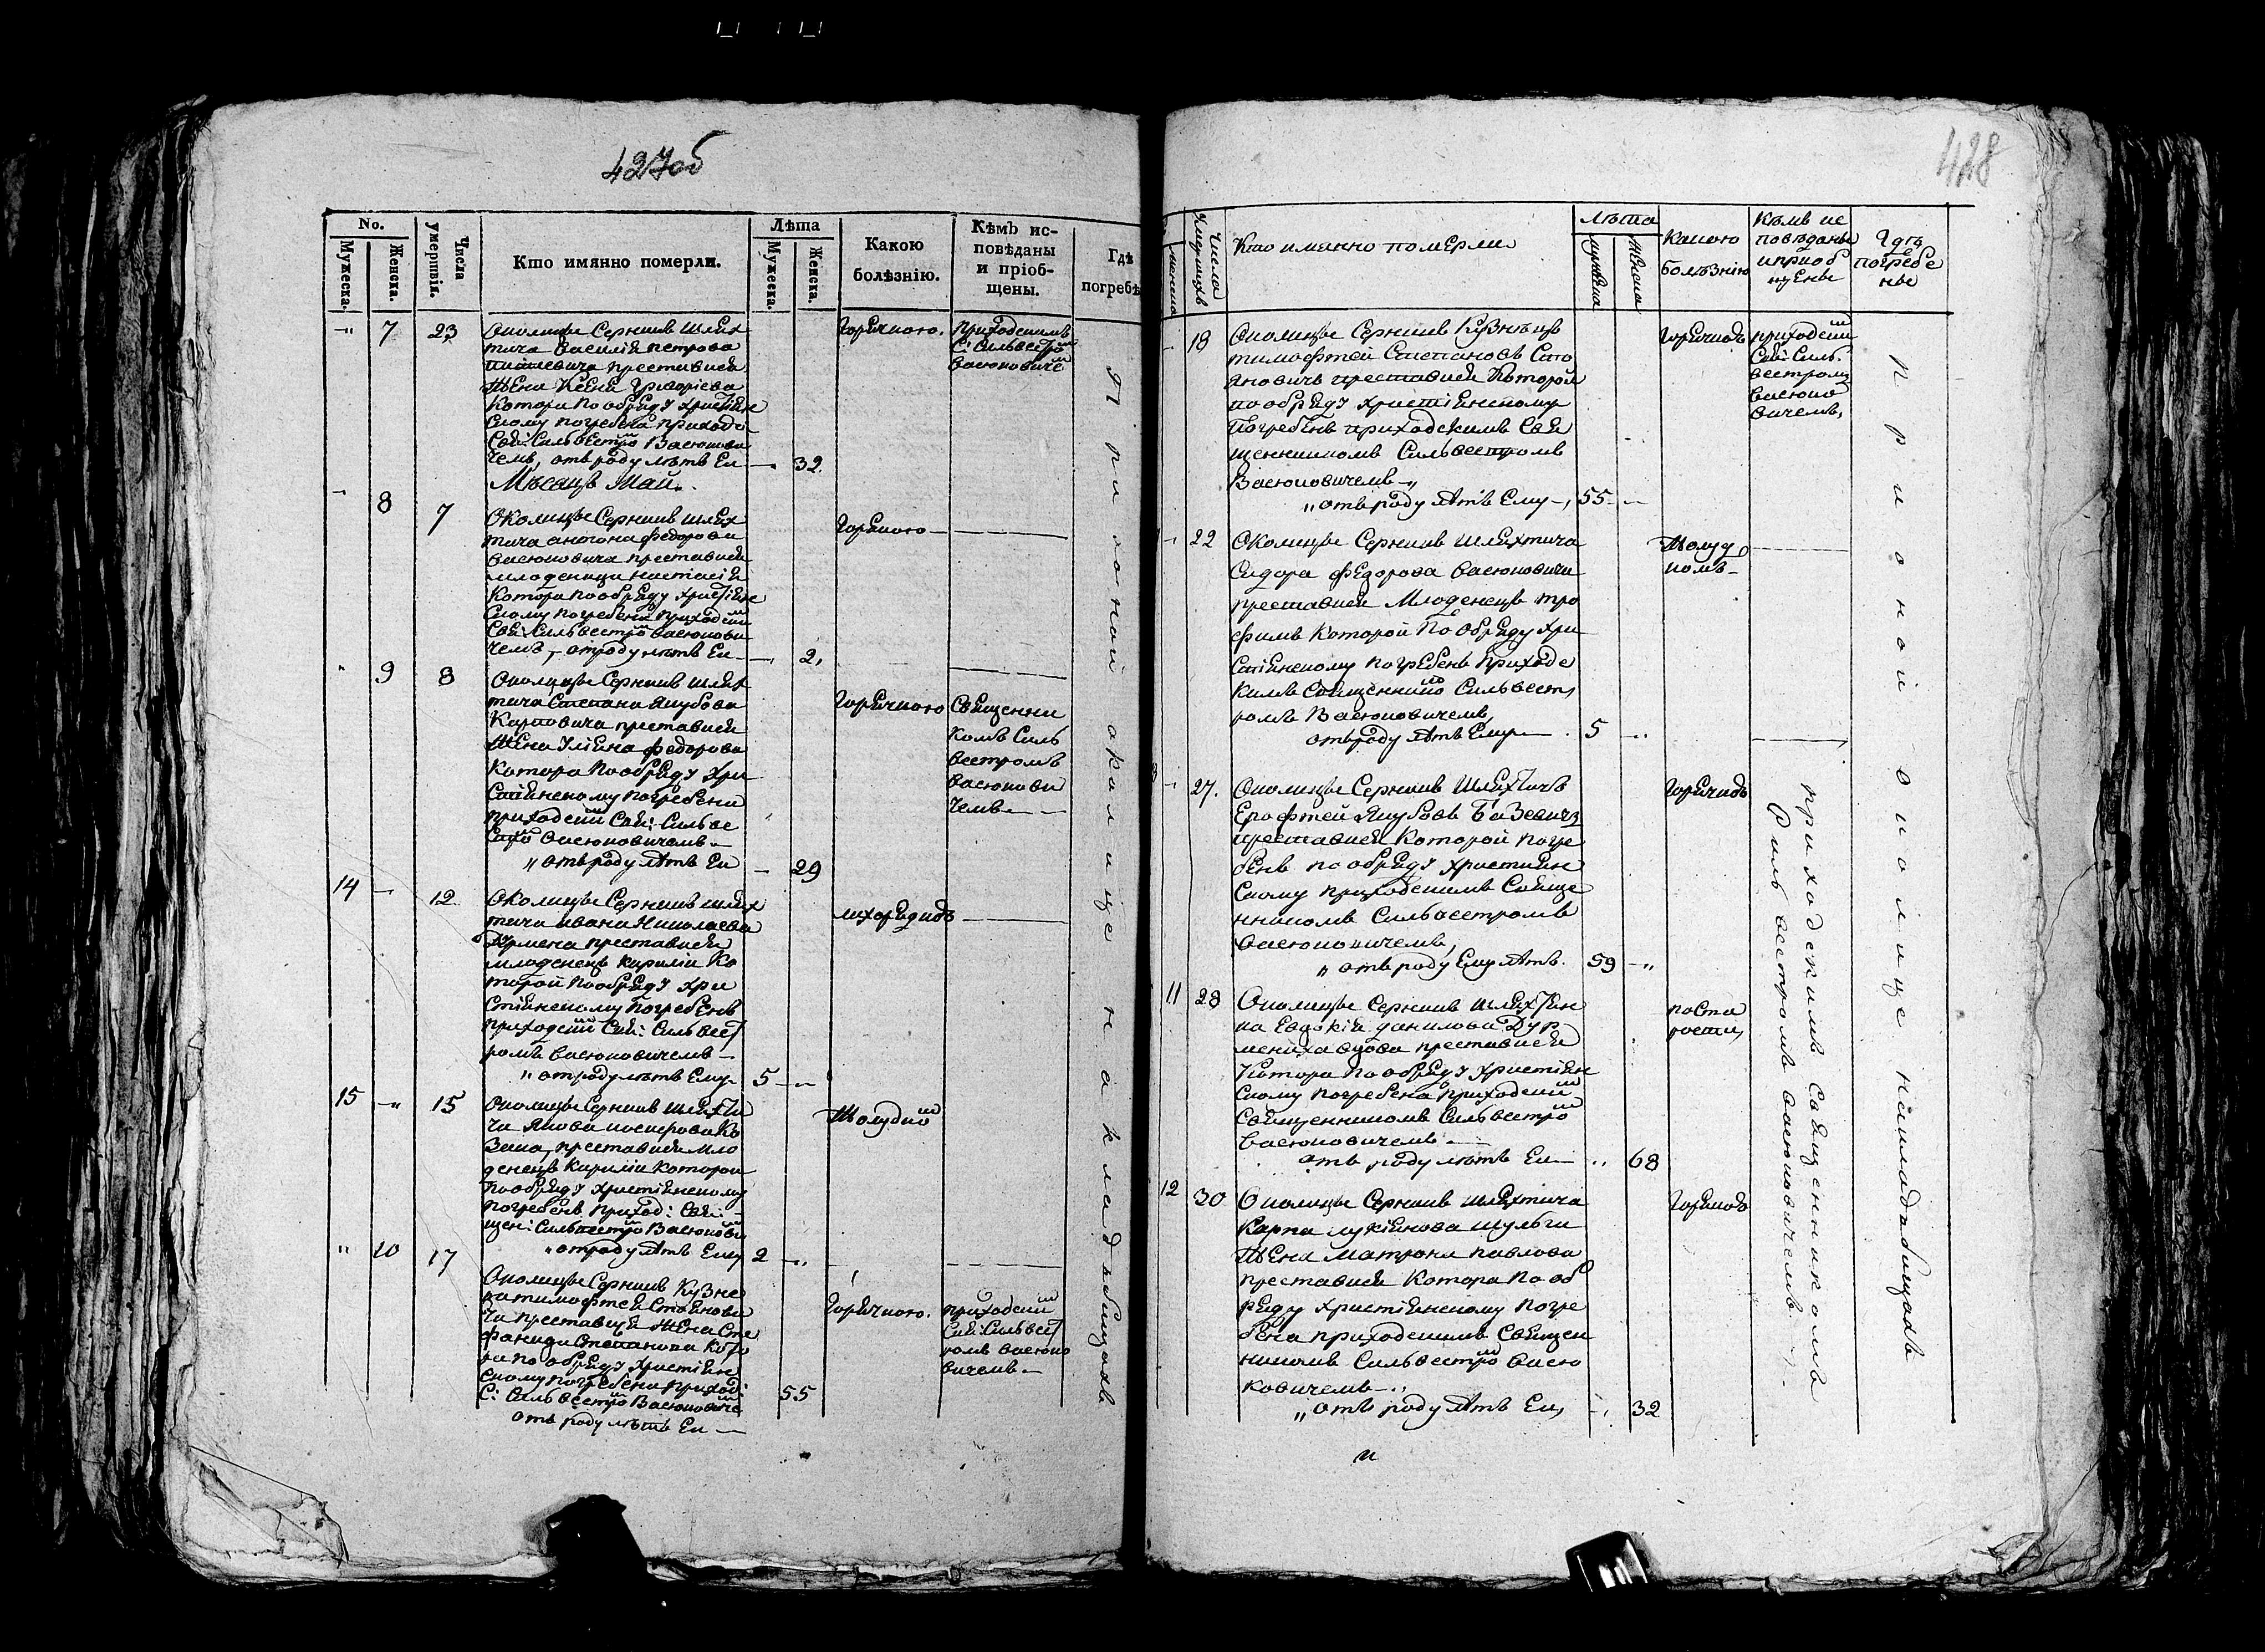 427об
No.
Мужеска.
Женска.
Числа умершвiи.
Кто имянно померли.
Лѣта
Мужеска.
Женска.
Какою болѣзнiю.
Кѣмъ ис-
повѣданы
и прiоб-
щены.
Гдѣ
погребе
" 7 23
Околицы Сернивъ шлях
тича Василiя Петрова
преставися
жена Ксенiя Григорiева
котора по обряду христiян
скому погребена приходс
Свя: Сильвестро Васюкови
чемъ, отъ роду лѣтъ Ей — 32.
Горячкою.
приходскимъ
С: Сильвестро
Васюковиче
Мѣсяцъ Май.
8 7
Околицы Сернивъ шлях
тича Антона Федорова
Васюковича преставися
младеница Настасiя
котора по обряду христiян
скому погребена приходски
Свя: Сильвестро Васюкови
чемъ, отроду лѣтъ Ей — 2.
Горячкою
9 8
Околицы Сернивъ шлях
тича Степана Якубова
Карповича преставися
жена Улiяна Федорова
котора по обряду хри
стiянскому погребена
приходски Свя: Сильве
стро Васюковичемъ —
" отъ роду лѣтъ Ей — 29
Горячкою
Священни
комъ Силь
вестромъ
Васюкови
чемъ
14 — 12
Околицы Сернивъ шлях
тича Ивана Николаева
Дурмена преставися
младенецъ Кирилiй ко
торой по обряду хри
стiянскому погребенъ
приходски Свя: Сильвест
ромъ Васюковичемъ —
" отроду лѣтъ Ему 5 — "
лихорадкою
15 — " 15
Околицы Сернивъ шляхти
ча Якова Ко
зека, преставися мла
денецъ Кирилiй которой
по обряду христiянскому
погребенъ приход: Свя-
щен: Сильвестро Васюкови
" отроду лѣтъ Ему 2 — "
Желудко
" 10 17
Околицы Сернивъ Кузне
ца Тимофтея Стоянови
ча преставися жена Сте
фанида Степанова кото
ра по обряду христiян
скому погребена приход:
С: Сильвестро Васюкович
отъ роду лѣтъ Ей — 55
Горячкою.
приходски
Свя: Сильвест
ромъ Васюко
вичемъ —
При оной околице на кладъбищахъ
428
Женска
Числа умершихъ
Кто имянно померли
Лѣта
мужеска
женска
Какою
болѣзнiю
Кѣмъ ис
повѣданы
и приоб
щены
Гдѣ
погребе
ны
— 18
Околицы Сернивъ Кузнецъ
Тимофтей Степановъ Сто
яновичъ преставися которой
по обряду христiянскому
погребенъ приходскимъ Свя
щенникомъ Сильвестромъ
Васюковичемъ — "
" отъ роду лѣтъ Ему — 55 —
Горячкою
приходским
Свя: Силь
вестромъ
Васюко
вичемъ,
— 22
Околицы Сернивъ шляхтича
Сидора Федорова Васюковича
преставися младенецъ Тро
фимъ которой по обряду хри
стiянскому погребенъ приходс
кимъ Священнико Сильвест
ромъ Васюковичемъ,
отъ роду лѣтъ Ему — 5 — "
Желуд
комъ —
— 27.
Околицы Сернивъ шляхтичъ
Ерофтей Якубовъ Базевичъ
преставися которой погре
бенъ по обряду християн
скому приходскимъ Свяще
нникомъ Сильвестромъ
Васюковичемъ,
" отъ роду Ему лѣтъ. 59 — "
Горячкою
11 28
Околицы Сернивъ шляхтян
ка Евдокiя Данилова Дур
мениха вдова преставися
котора по обряду христiян
скому погребена приходски
Священникомъ Сильвестро
Васюковичемъ —
отъ роду лѣтъ Ей — " 68
по ста
рости,
12 30
Околицы Сернивъ шляхтича
Карпа Лукiянова Шульги
жена Матрона Павлова
преставися котора по об
ряду христiянскому погре
бена приходскимъ Священ
никомъ Сильвестро Васю
ковичемъ — "
" отъ роду лѣтъ Ей, — 32
Горячкою
приходскимъ Священникомъ
Сильвестромъ Васюковичемъ —
При оной околице на кладъбищахъ
и